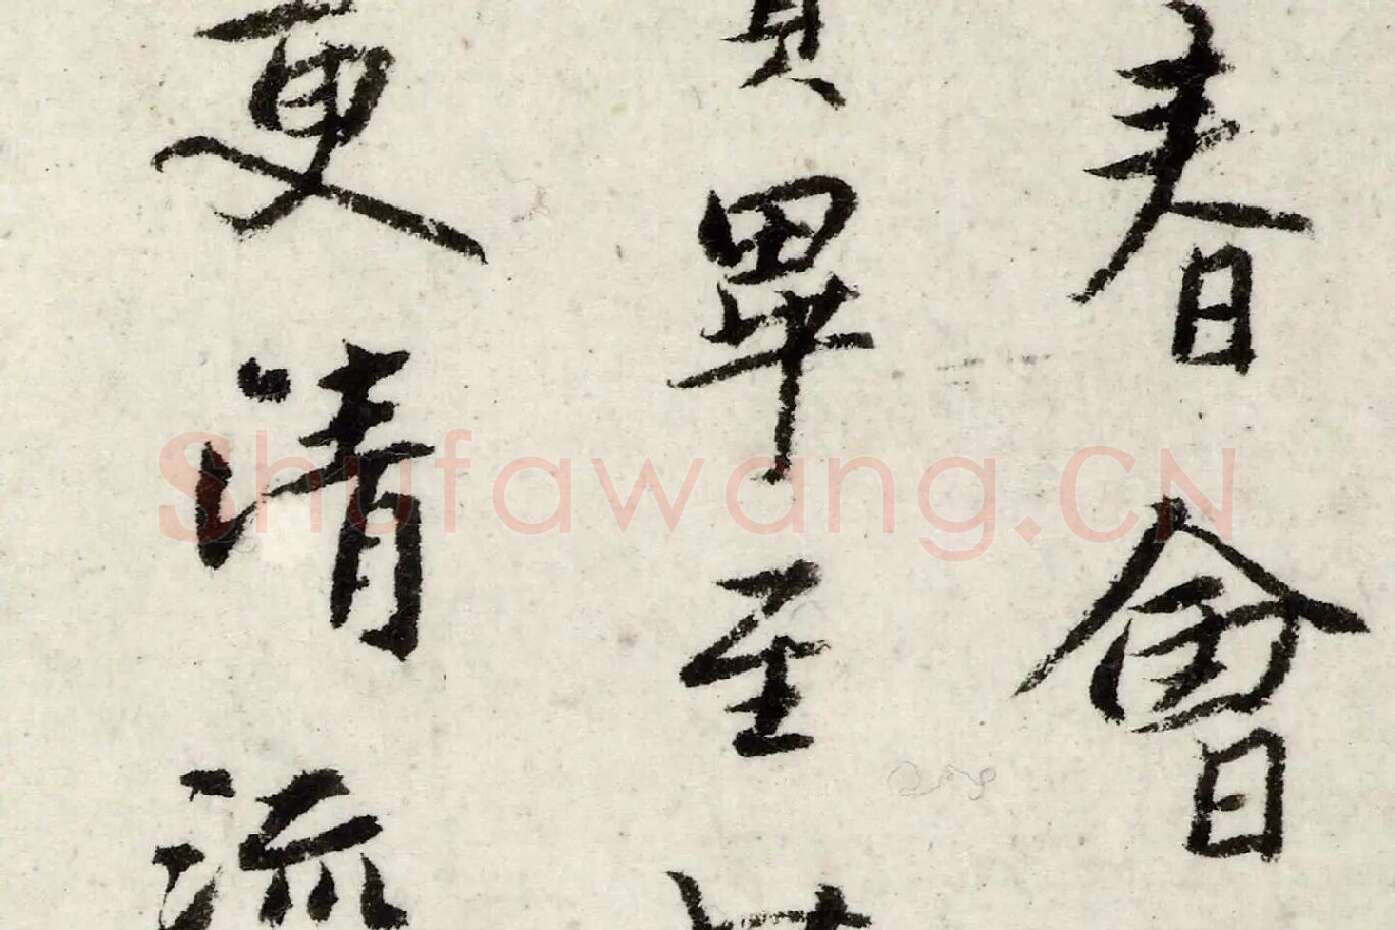 春會
畢至
更清流
Shufawang.CN